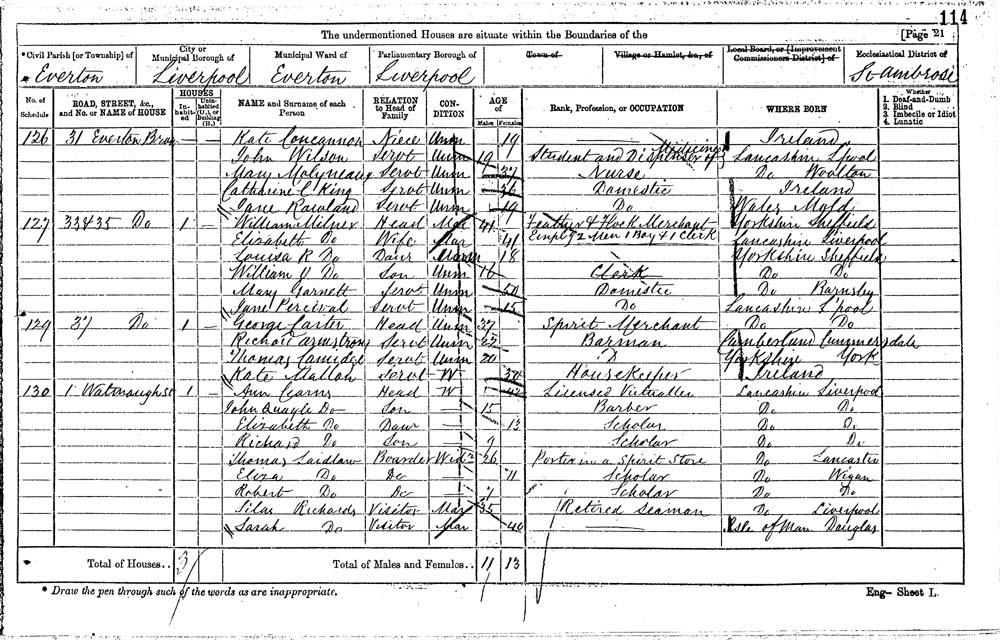 114
The undermentioned Houses are situate within the Boundaries of the [Page 21
Civil Parish [or Township] of City or Municipal Borough of Municipal Ward of Parliamentary Borough of Town of Village or Hamlet, &c., of Local Board, or [Improvement Commissioners District] of Ecclesiastical District of
Everton Liverpool Everton Liverpool St Ambrose
No. of Schedule ROAD, STREET, &c., and No. or NAME of HOUSE HOUSES Inhabited Uninhabited (U.), or Building (B.) NAME and Surname of each Person RELATION to Head of Family CONDITION AGE of Males Females Rank, Profession, or OCCUPATION WHERE BORN Whether 1. Deaf-and-Dumb 2. Blind 3. Imbecile or Idiot 4. Lunatic
126 31 Everton Brow — — Kate Concannon Niece Unm 19 — Ireland
John Wilson Servt Unm 19 Student and Dispenser of Medicine Lancashire L'pool
Mary Molyneaux Servt Unm 37 Nurse Do Woolton
Catherine C King Servt Unm 36 Domestic Ireland
Jane Rowland Servt Unm 19 Do Wales Mold
127 33 & 35 Do 1 — William Milner Head Mar 41 Feather & Flock Merchant Yorkshire Sheffield
Elizabeth Do Wife Mar 41 Empl'g 2 Men 1 Boy & 1 Clerk Lancashire Liverpool
Louisa R Do Daur 18 Yorkshire Sheffield
William Do Son Unm 16 Clerk Do Do
Mary Garnett Servt Unm 50 Domestic Do Barnsley
Jane Percival Servt Unm Do Lancashire L'pool
129 37 Do 1 — George Carter Head Unm 37 Spirit Merchant Do Do
Richard Armstrong Servt Unm 22 Barman Cumberland Cummersdale
Thomas Servt Unm 20 D Yorkshire York
Kate Mallon Servt W 30 Housekeeper Ireland
130 1 1 — Ann Cairns Head W 42 Licensed Victualler Lancashire Liverpool
John Quayle Do Son — 15 Barber Do Do
Elizabeth Do Daur — 13 Scholar Do Do
Richard Do Son — 9 Scholar Do Do
Thomas Laidlaw Boarder Widr 26 Porter in a Spirit Store Do Lancaster
Eliza Do Do — 11 Scholar Do Wigan
Robert Do Do — 7 Scholar Do Do
Silas Richards Visitor Mar 35 Retired Seaman Do Liverpool
Sarah Do Visitor Mar 40 — Isle of Man Douglas
Total of Houses.. 3 Total of Males and Females.. 11 13
* Draw the pen through such of the words as are inappropriate. Eng— Sheet L.